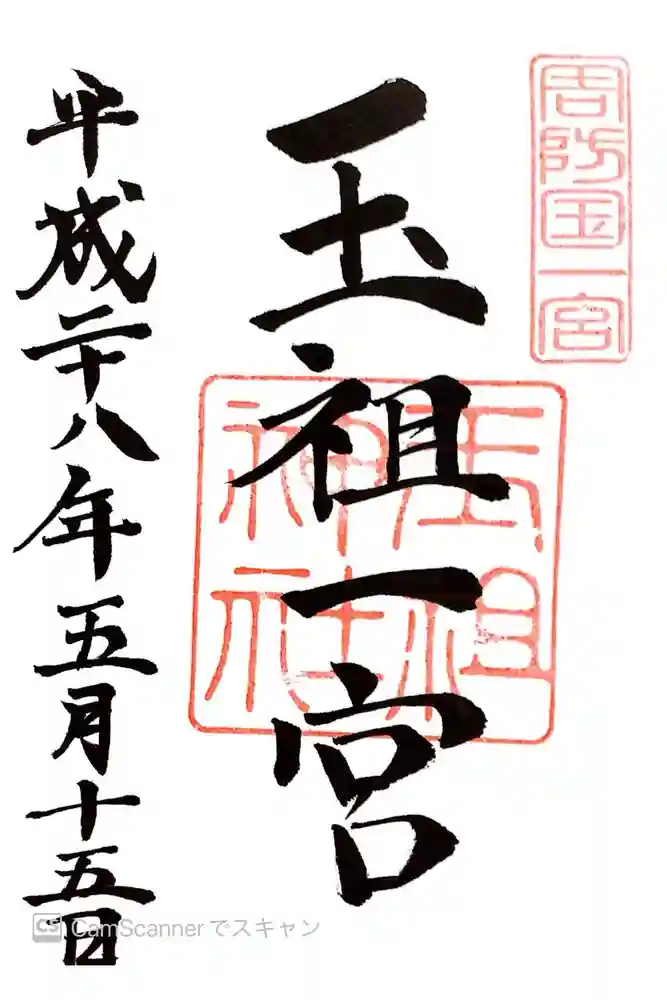 周防国一宮
玉祖一宮
玉祖
神社
平成二十八年五月十五日
CS CamScannerでスキャン